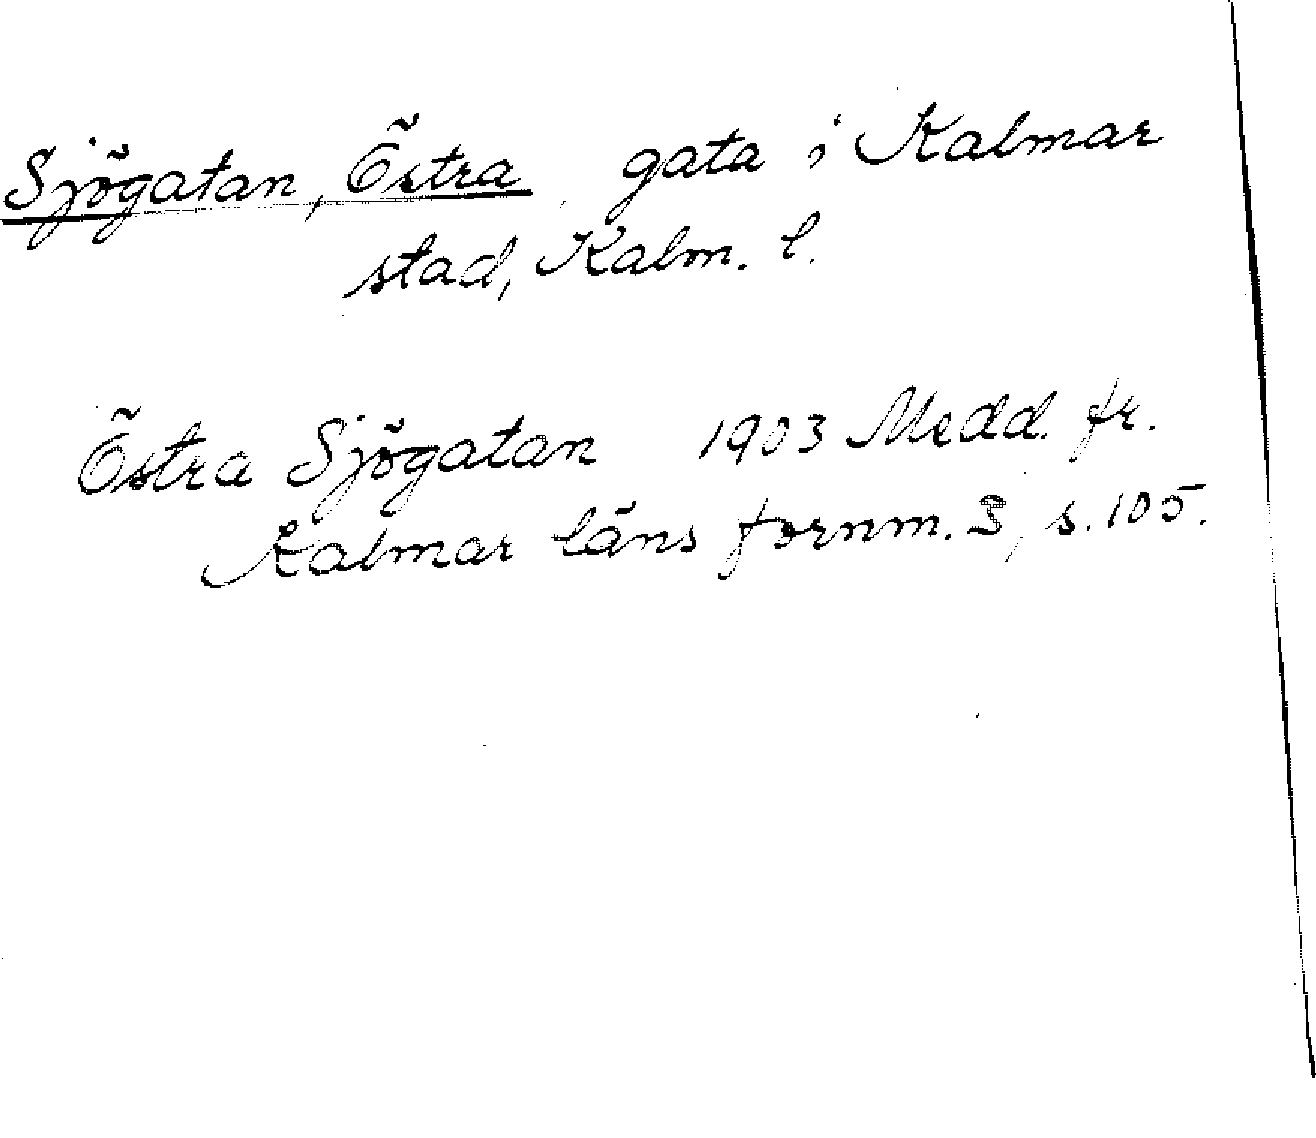 Sjögatan, Östra gata i Kalmar
stad, Kalm. l.
Östra Sjögatan 1903 Medd. fr.
Kalmar läns fornm. 3, s. 105.